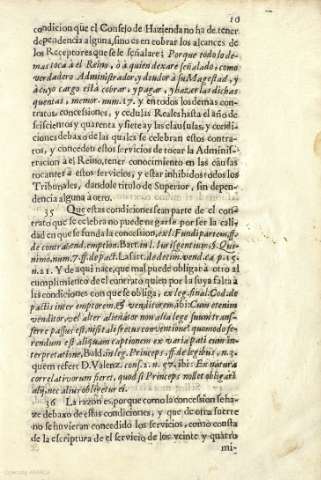 10
condicion que el Consejo de Hazienda no ha de tener
dependencia alguna, sino es en cobrar los alcances de
los Receptores que se le señalare; Porque todo lo de-
mas toca à el Reino, ò à quien dexare señalado, como
verdadero Administrador, y deudor à su Magestad, y
à cuyo cargo està cobrar, y pagar, y hazer las dichas
quentas, memor. num. 17. y en todos los demas con-
tratos, concessiones, y cedulas Reales hasta el año de
seiscientos y quarenta y siete ay las clausulas, y condi-
ciones debaxo de las quales se celebran estos contra-
tos, y conceden estos servicios de tocar la Adminis-
tracion à el Reino, tener conocimiento en las causas
tocantes à estos servicios, y estar inhibidos todos los
Tribunales, dandole titulo de Superior, sin depen-
dencia alguna à otro.
35 Que estas condiciones sean parte de el con-
trato que se celebra no puede negarse por ser la cali-
dad en que se funda la concession, ex l. Fundi partem, ff.
de contrahend. emption. Bart. in l. Iurisgentium §. Qui-
nimo, num. 7. ff. de pact. Lasart. de decim. vend. ca. p. 15.
n. 21. Y de aqui nace, que mal puede obligar à otro al
cumplimiento de el contrato quien por la suya falta à
las condiciones con que se obliga, ex leg. final. Cod. de
pactis inter emptorem, & venditorem, ibi: Cum etenim
venditor, vel alter alienator non alia lege suum trans-
ferre passus est, nisi tali fretus conventione, quomodo fe-
rendum est aliquam captionem ex varia pati eum in-
terpretatione, Bald. in leg. Princeps, ff. de legibus, n. 3.
quem refert D. Valenz. cons. n. 57. ibi: Ex natura
correlativorum fieret, quod si Princeps nollet obligari
alij, nec alius obligetur ei.
36 La razon es, porque como la concession se ha-
ze debaxo de estas condiciones, y que de otra suerte
no se huvieran concedido los servicios, como consta
de la escriptura de el servicio de los veinte y quatro
mi-